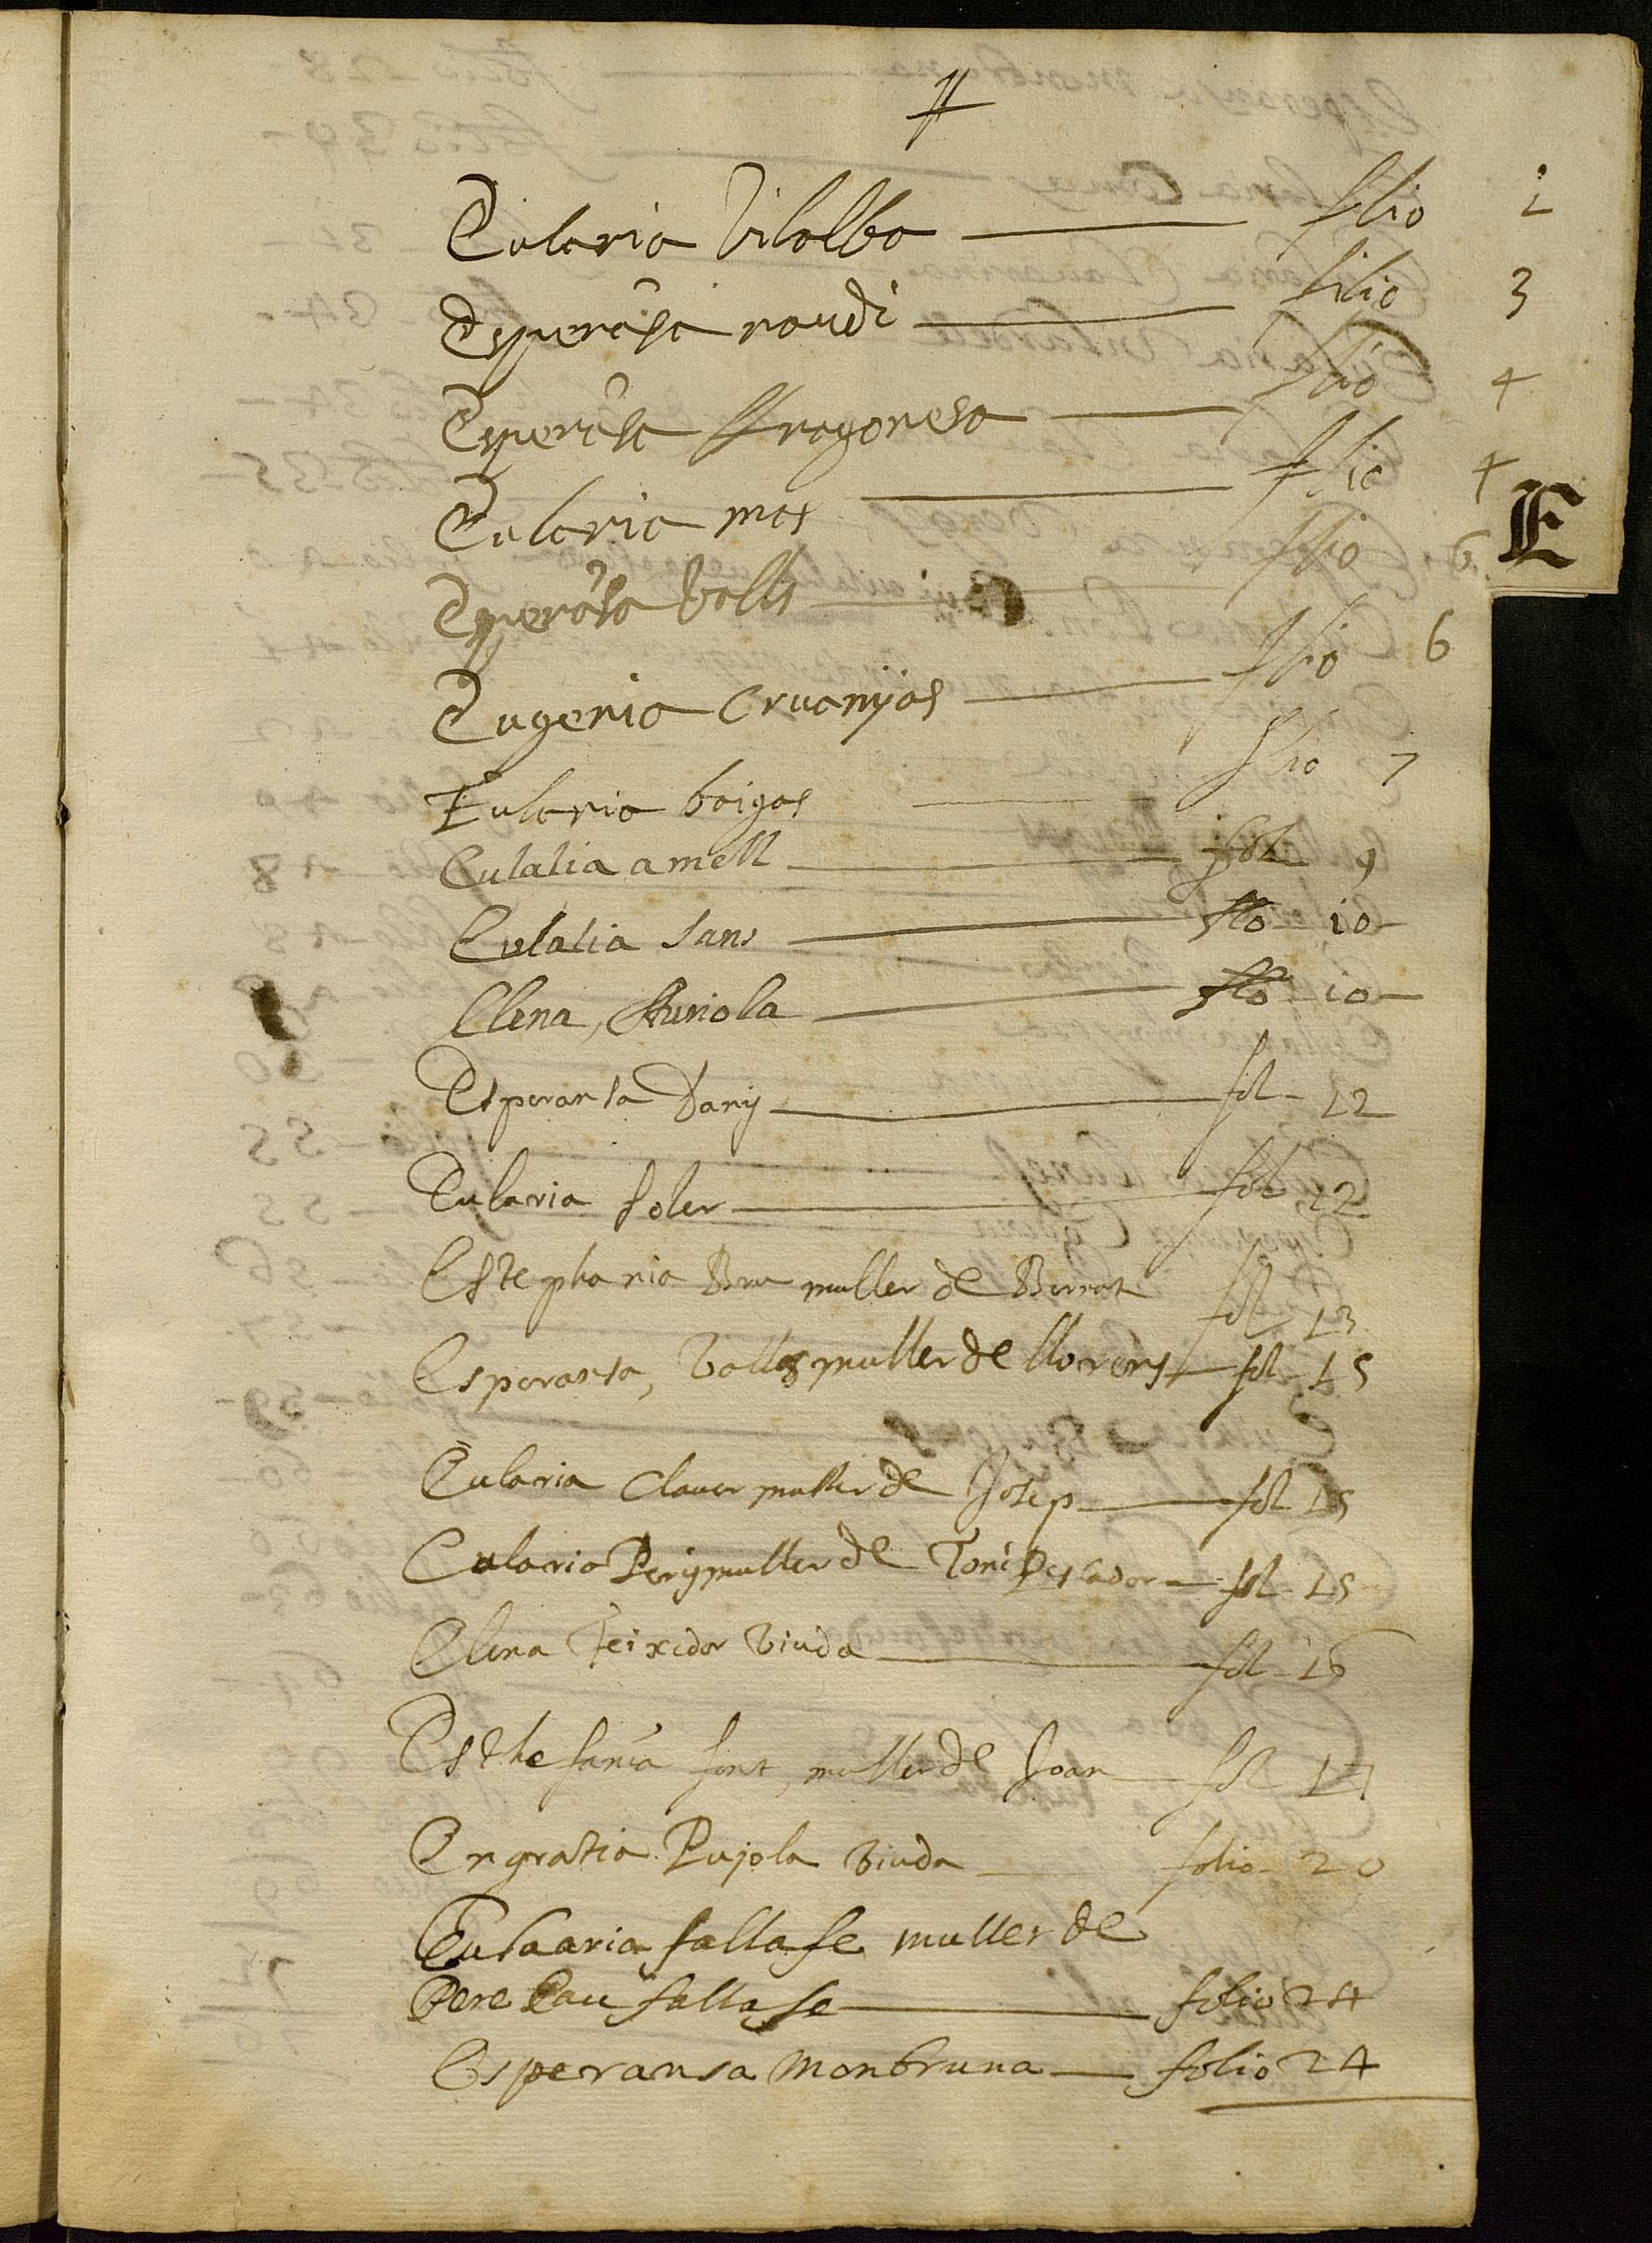 Eularia Vilalba folio 1
Esperãsa naudi folio 3
Esperãsa Aragonesa folio 4
Eularia mas folio 4
E
Esperãsa Valls folio 6
Eugenia Cruanyas folio 6
Eularia boigas folio 7
Eulalia amell fol 9
Eulalia sans folio 10
Elena, Auriola folio 10
Esperansa Dany fol 12
Eularia soler fol 12
Estephania Bru muller de Barrot fol 13
Esperansa, Valls muller de llorens fol 15
Eularia Claver muller de Josep fol 15
Eularia Peris muller de Toni Pescador fol 15
Elena Teixidor Viuda fol 16
Esthefania font, muller de Joan fol 17
Engratia Pujola Viuda folio 20
Eulaaria fallase muller de
Pere Pau fallase folio 24
Esperansa Monbruna folio 24